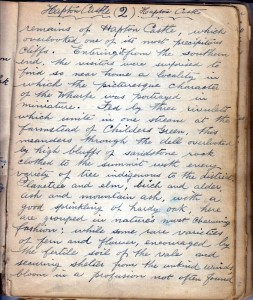 Hapton Castle (2) Hapton Castle
remains of Hapton Castle, which
overlooked one of its most precipitous
Cliffs. Entering from the northern
end, the visitors were surprised to
find so near home a locality in
which the picturesque character
of the Wharfe was portrayed in
miniature. Fed by three rivulets
which unite in one stream at the
farmstead of Childers Green, this
meanders through the dell overlooked
by high bluffs of sandstone rock
clothed to the summit with every
variety of tree indigenous to the district
Plane tree and elm, birch and alder,
ash and mountain ash, with a
good sprinkling of hardy oak, here
are grouped in natures most charming
fashion: while some rare varieties
of fern and flower, encouraged by
the fertile soil of the vale and
securing shelter from the unkind winds
bloom in a profusion not often found